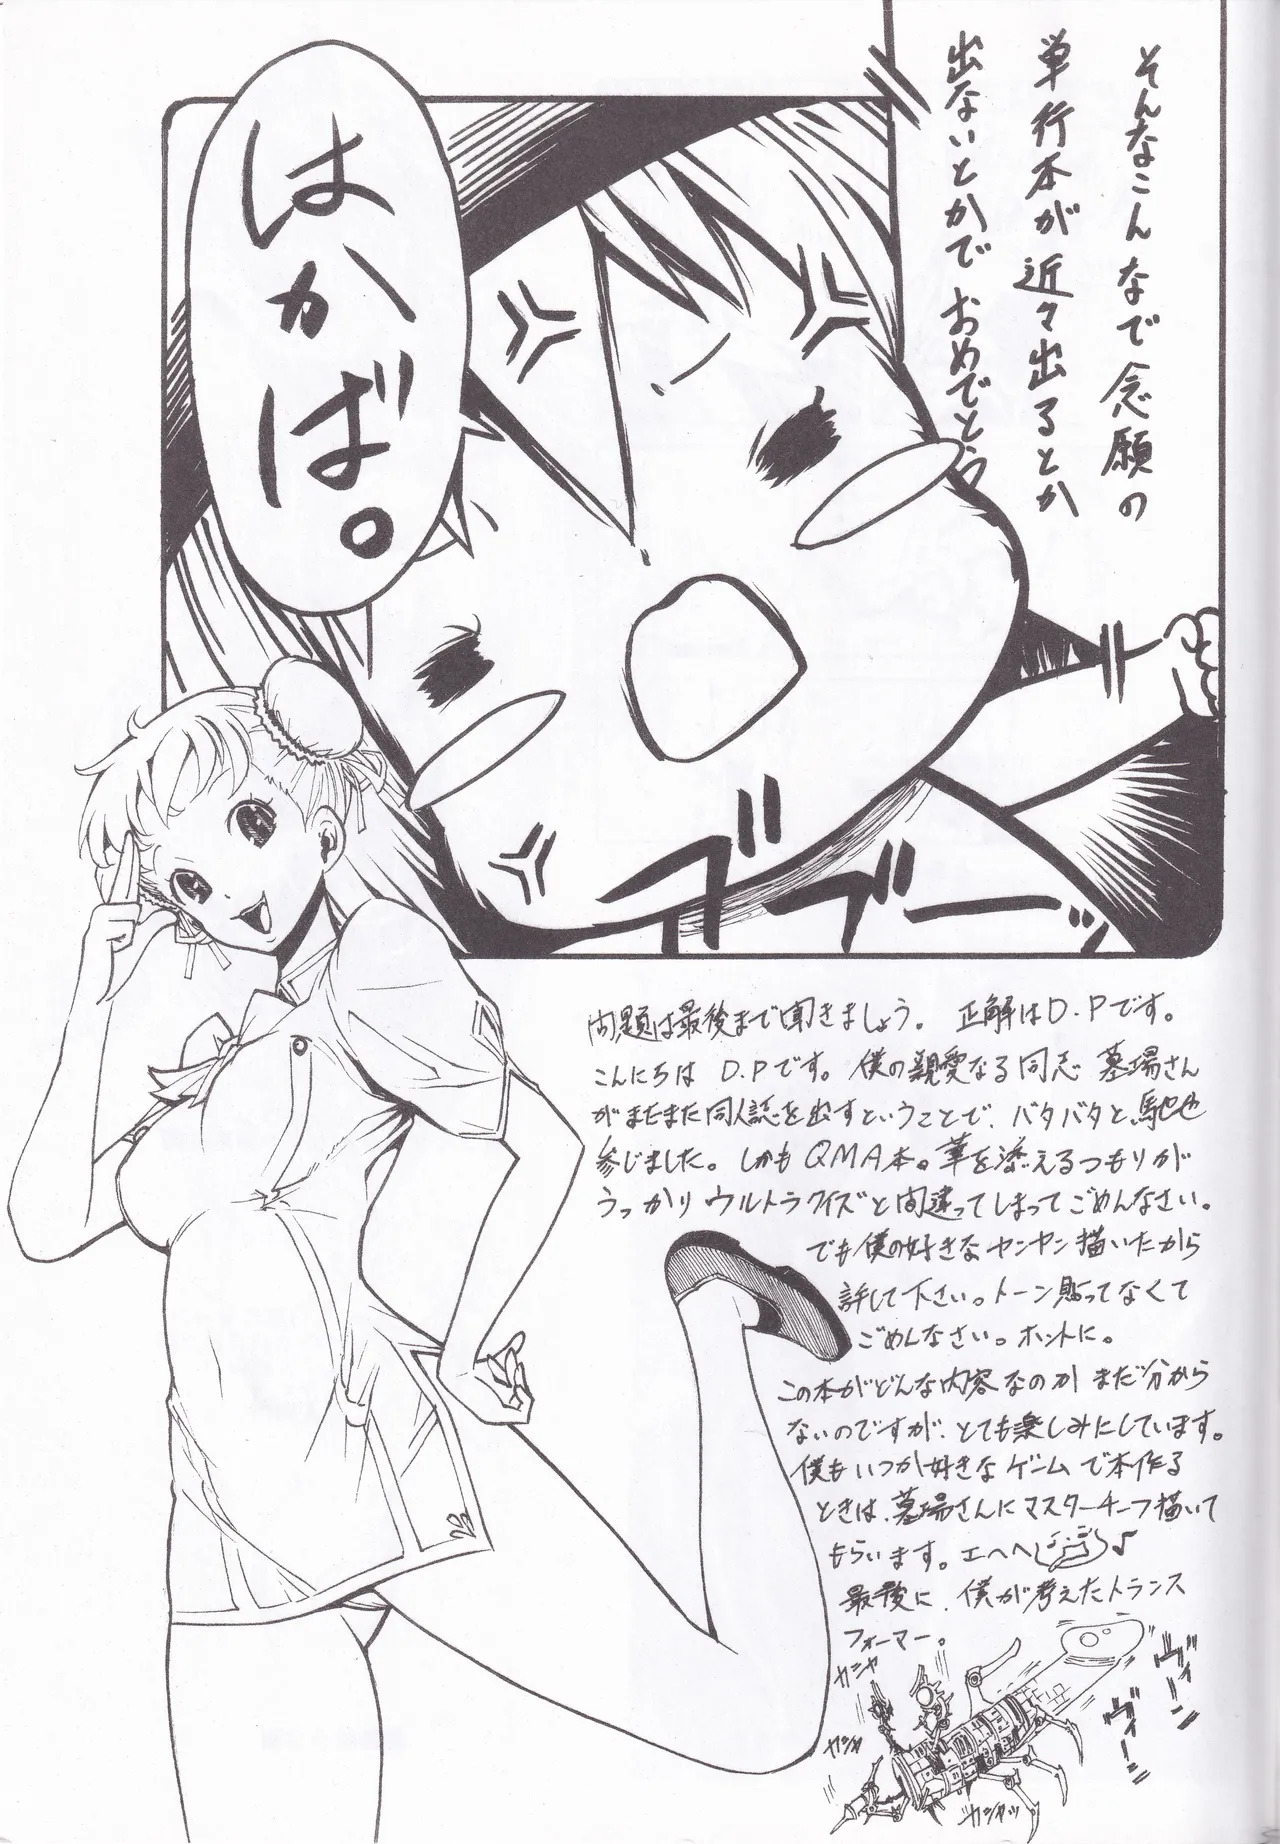 そんなこんなで念願の
単行本が近々出るとか
出ないとかでおめでとう
はかば。
ブブーッ
問題は最後まで聞きましょう。 正解はD.Pです。
こんにちは D.Pです。僕の親愛なる同志 墓場さん
がまたまた同人誌を出すということで、バタバタと馳せ
参じました。しかもQMA本。華を添えるつもりが
うっかりウルトラクイズと間違ってしまってごめんなさい。
でも僕の好きなヤンヤン描いたから
許して下さい。トーン貼ってなくて
ごめんなさい。ホントに。
この本がどんな内容なのかまだ分から
ないのですが、とても楽しみにしています。
僕もいつか好きなゲームで本作る
ときは、墓場さんにマスターチーフ描いて
もらいます。エヘヘ♪
最後に、僕が考えたトランス
フォーマー。
カシャ
カシャ
カシャッ
ヴィーン
ヴィーン